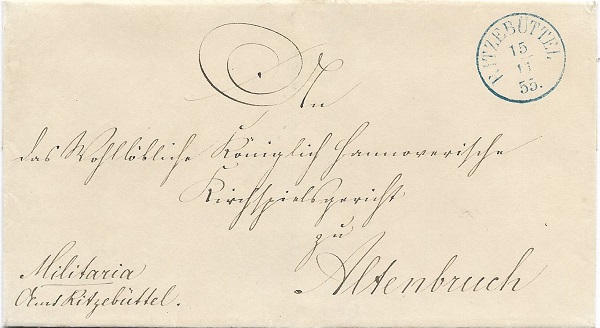 RITZEBÜTTEL
15/11
55.
An
das Wohllöbliche Königlich Hannoversche
Kirchspielsgericht
zu
Altenbruch
Militaria
Amt Ritzebüttel.